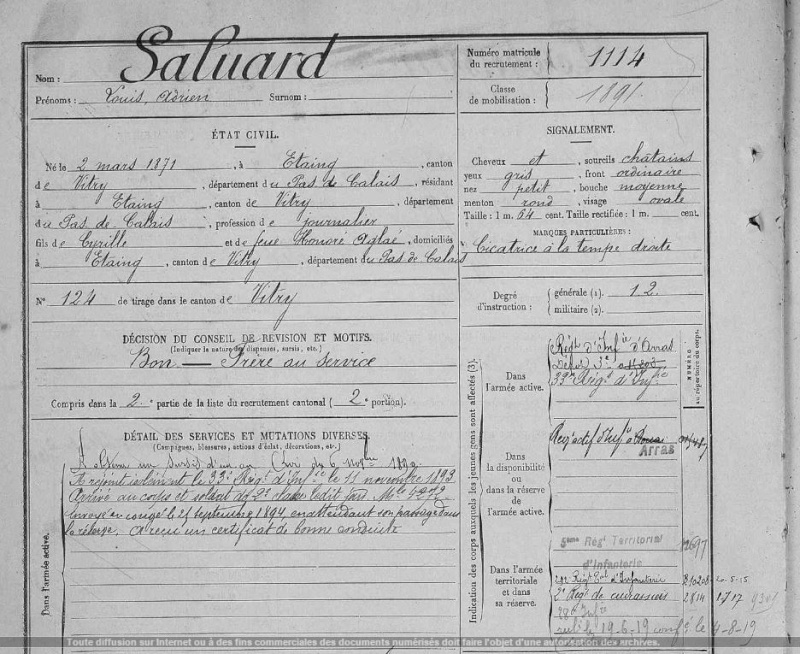 Nom : Saluard
Prénoms : Louis, Adrien Surnom :
Numéro matricule du recrutement : 1114
Classe de mobilisation : 1891.
ÉTAT CIVIL.
Né le 2 mars 1871, à Etaing, canton
de Vitry, département du Pas de Calais, résidant
à Etaing, canton de Vitry, département
du Pas de Calais, profession de journalier
fils de Cyrille et de feue Honoré Aglaé, domiciliés
à Etaing, canton de Vitry, département du Pas de Calais
N° 124 de tirage dans le canton de Vitry
SIGNALEMENT.
Cheveux et sourcils châtains
yeux gris, front ordinaire
nez petit, bouche moyenne
menton rond, visage ovale
Taille : 1 m. 54 cent. Taille rectifiée : 1 m. cent.
MARQUES PARTICULIÈRES :
Cicatrice à la tempe droite
Degré d'instruction : générale (1). 1.2.
militaire (2).
DÉCISION DU CONSEIL DE REVISION ET MOTIFS.
(Indiquer la nature des dispenses, sursis, etc.)
Bon — Frère au service
Compris dans la 2e partie de la liste du recrutement cantonal (2e portion).
DÉTAIL DES SERVICES ET MUTATIONS DIVERSES.
(Campagnes, blessures, actions d'éclat, décorations, etc.)
A obtenu un sursis d'un an
A rejoint isolément le 33e Régt d'Infie le 11 novembre 1893
Arrivé au corps et soldat de 2e classe ledit jour Mle
Envoyé en congé le 21 septembre 1894 en attendant son passage dans
la réserve. A reçu un certificat de bonne conduite
Dans l'armée active.
Indication des corps auxquels les jeunes gens sont affectés (3).
NUMÉRO
au répertoire du corps.
Dans l'armée active.
Régt d'Infie d'Arras
33e Régt d'Infie
Dans la disponibilité ou dans la réserve de l'armée active.
Arras
Dans l'armée territoriale et dans sa réserve.
5ème Régt Territorial
d'Infanterie
d'Infanterie 20-5-15
2e Régt de cuirassiers 2814 1717
19-6-19 4-8-19
Toute diffusion sur Internet ou à des fins commerciales des documents numérisés doit faire l'objet d'une autorisation des archives.